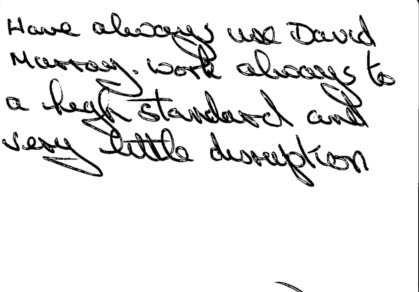 Have always use David
Murray. work always to
a high standard and
very little disruption